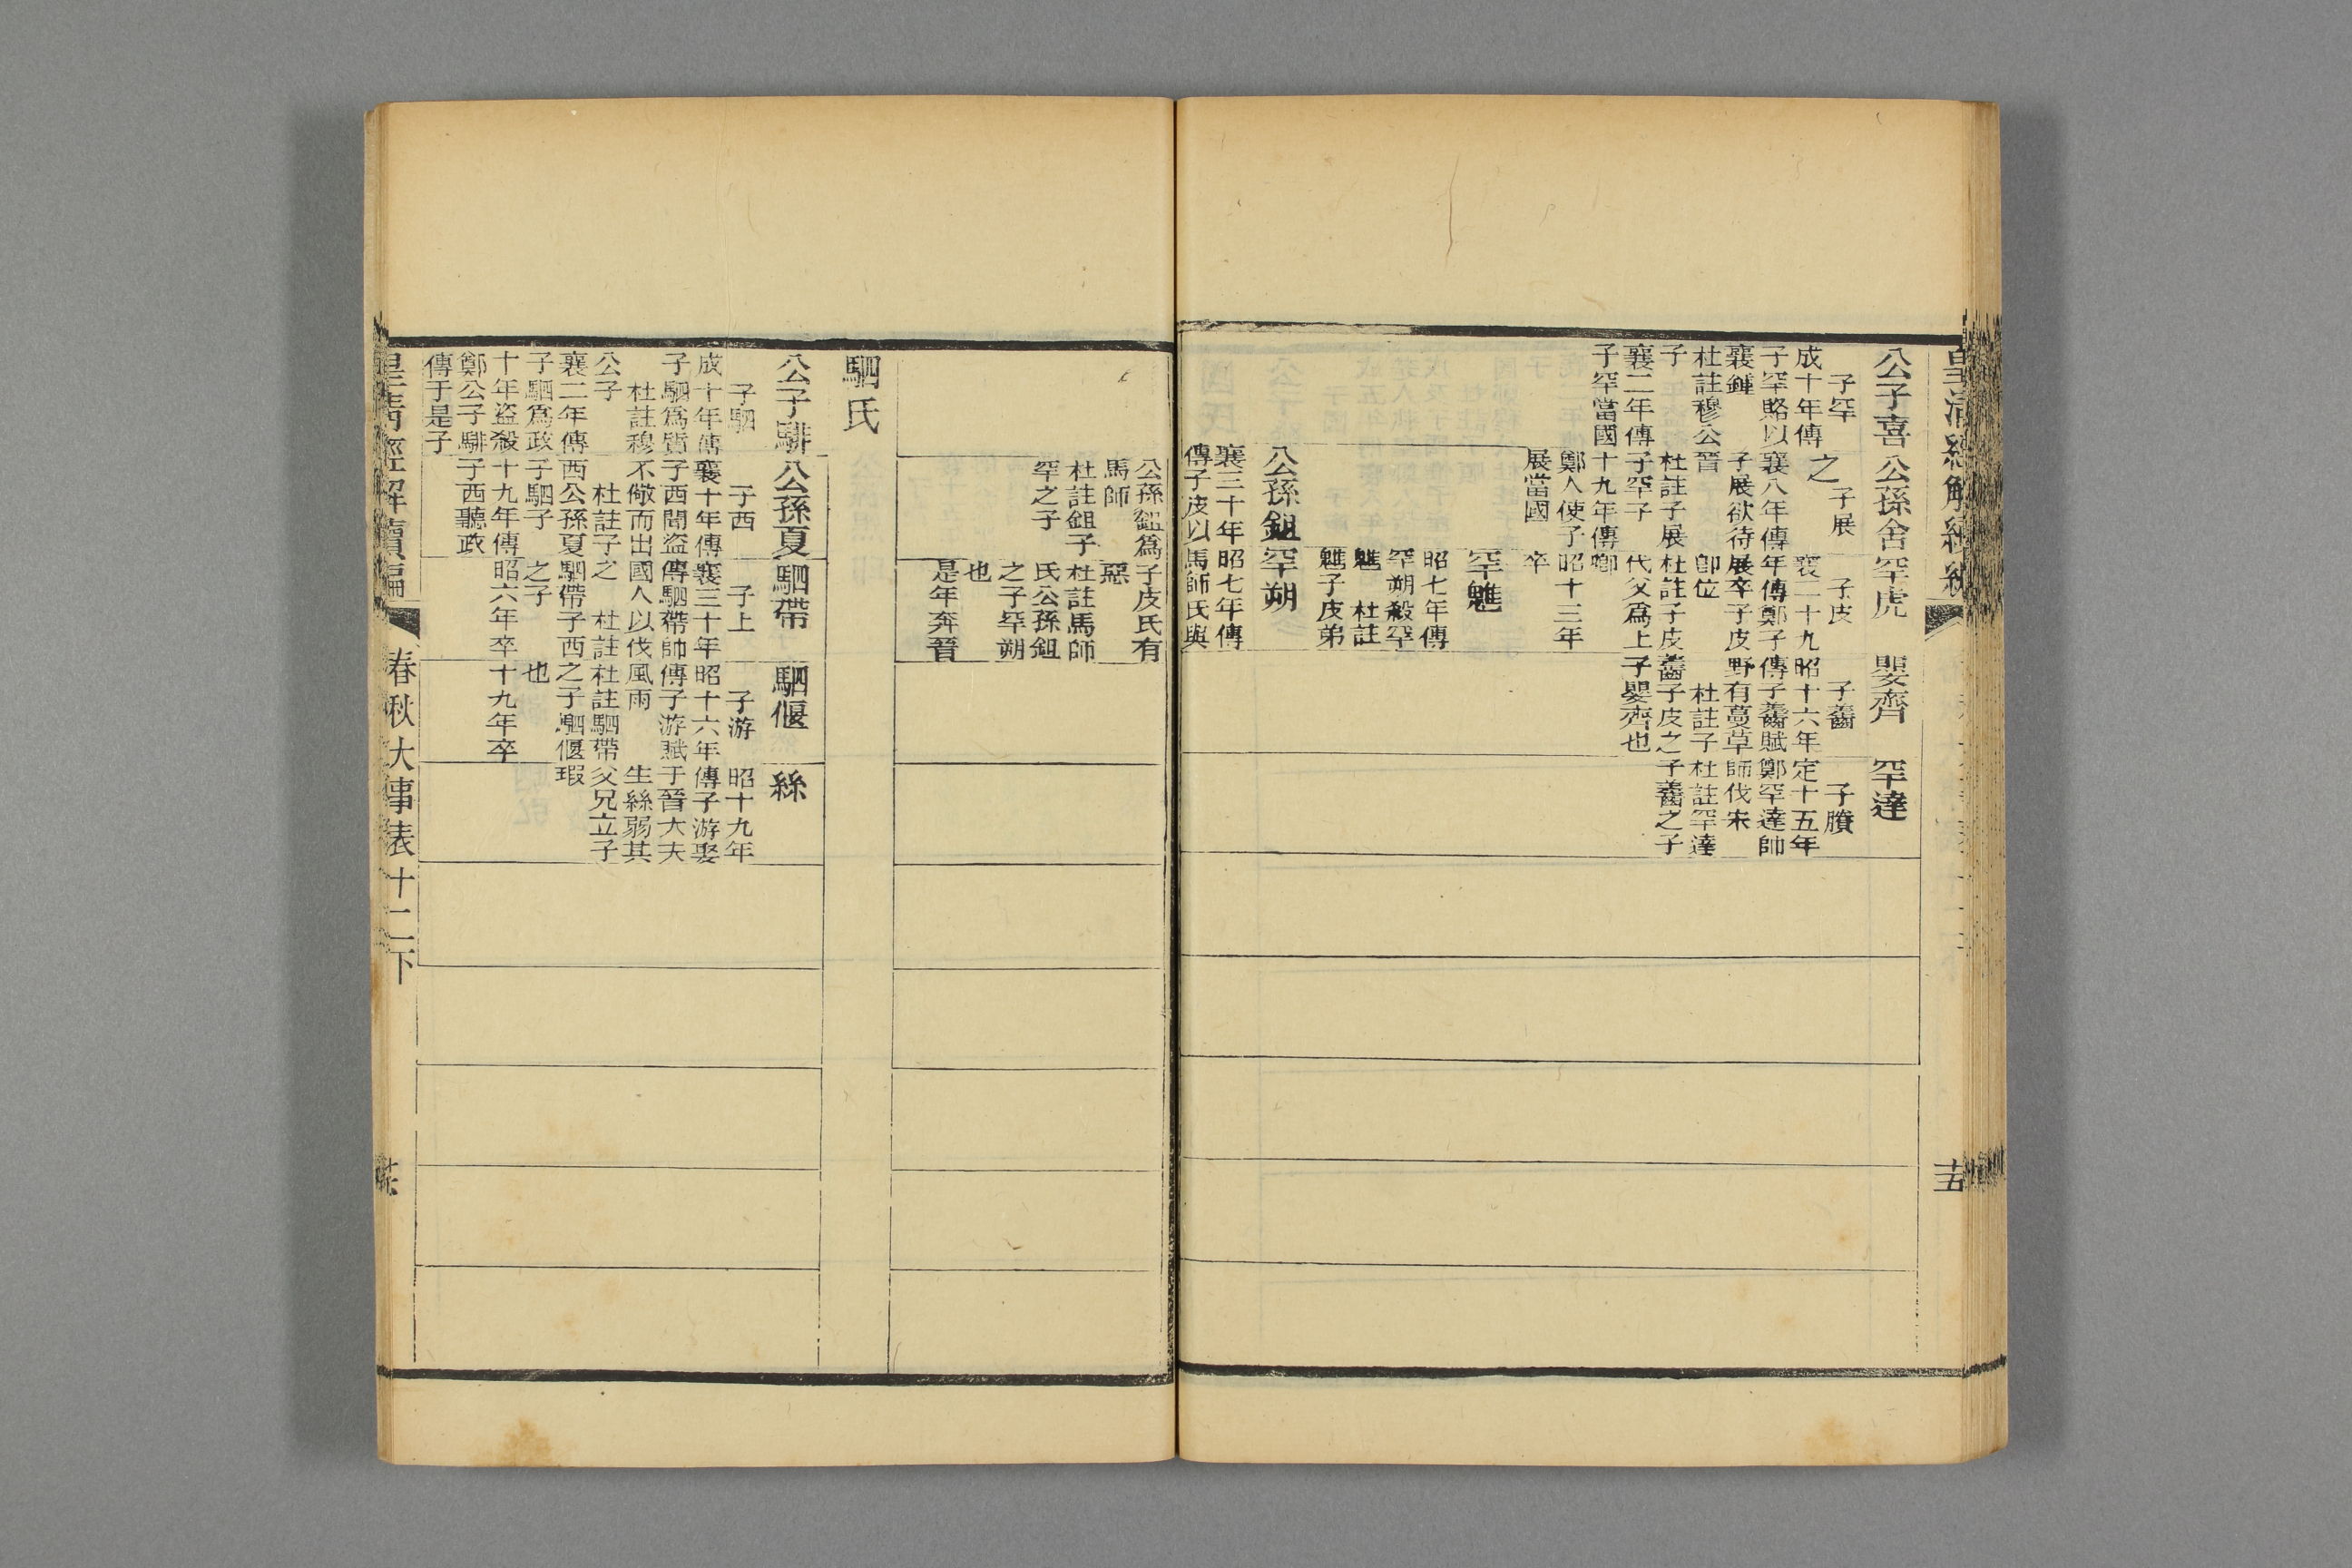 皇清經解續編
十五
公子喜
子罕
成十年傳
子罕賂以
襄鍾
杜註穆公
子
襄二年傳
子罕當國
公孫舍
之 子展
襄八年傳
子展欲待
晉
杜註子展
子罕子
十九年傳
鄭人使子
展當國
罕虎
子皮
襄二十九
年傳鄭子
展卒子皮
卽位
杜註子皮
代父爲上
卿
昭十三年
卒
嬰齊
子齹
昭十六年
傳子齹賦
野有蔓草
杜註子
齹子皮之
子嬰齊也
罕達
子賸
定十五年
鄭罕達帥
師伐宋
杜註罕達
子齹之子
罕魋
昭七年傳
罕朔殺罕
魋 杜註
魋子皮弟
公孫鉏
襄三十年
傳子皮以
公孫鉏爲
馬師
杜註鉏子
罕之子
罕朔
昭七年傳
馬師氏與
子皮氏有
惡
杜註馬師
氏公孫鉏
之子罕朔
也
是年奔晉
駟氏
公子騑
子駟
成十年傳
子駟爲質
杜註穆
公子
襄二年傳
子駟爲政
十年盜殺
鄭公子騑
傳于是子
公孫夏
子西
襄十年傳
子西聞盜
不儆而出
杜註子
西公孫夏
子駟子
十九年傳
子西聽政
駟帶
子上
襄三十年
傳駟帶帥
國人以伐
之 杜註
駟帶子西
之子
昭六年卒
駟偃
子游
昭十六年
傳子游賦
風雨
杜註駟帶
之子駟偃
也
十九年卒
絲
昭十九年
傳子游娶
于晉大夫
生絲弱其
父兄立子
瑕
皇清經解續編
春秋大事表十二下